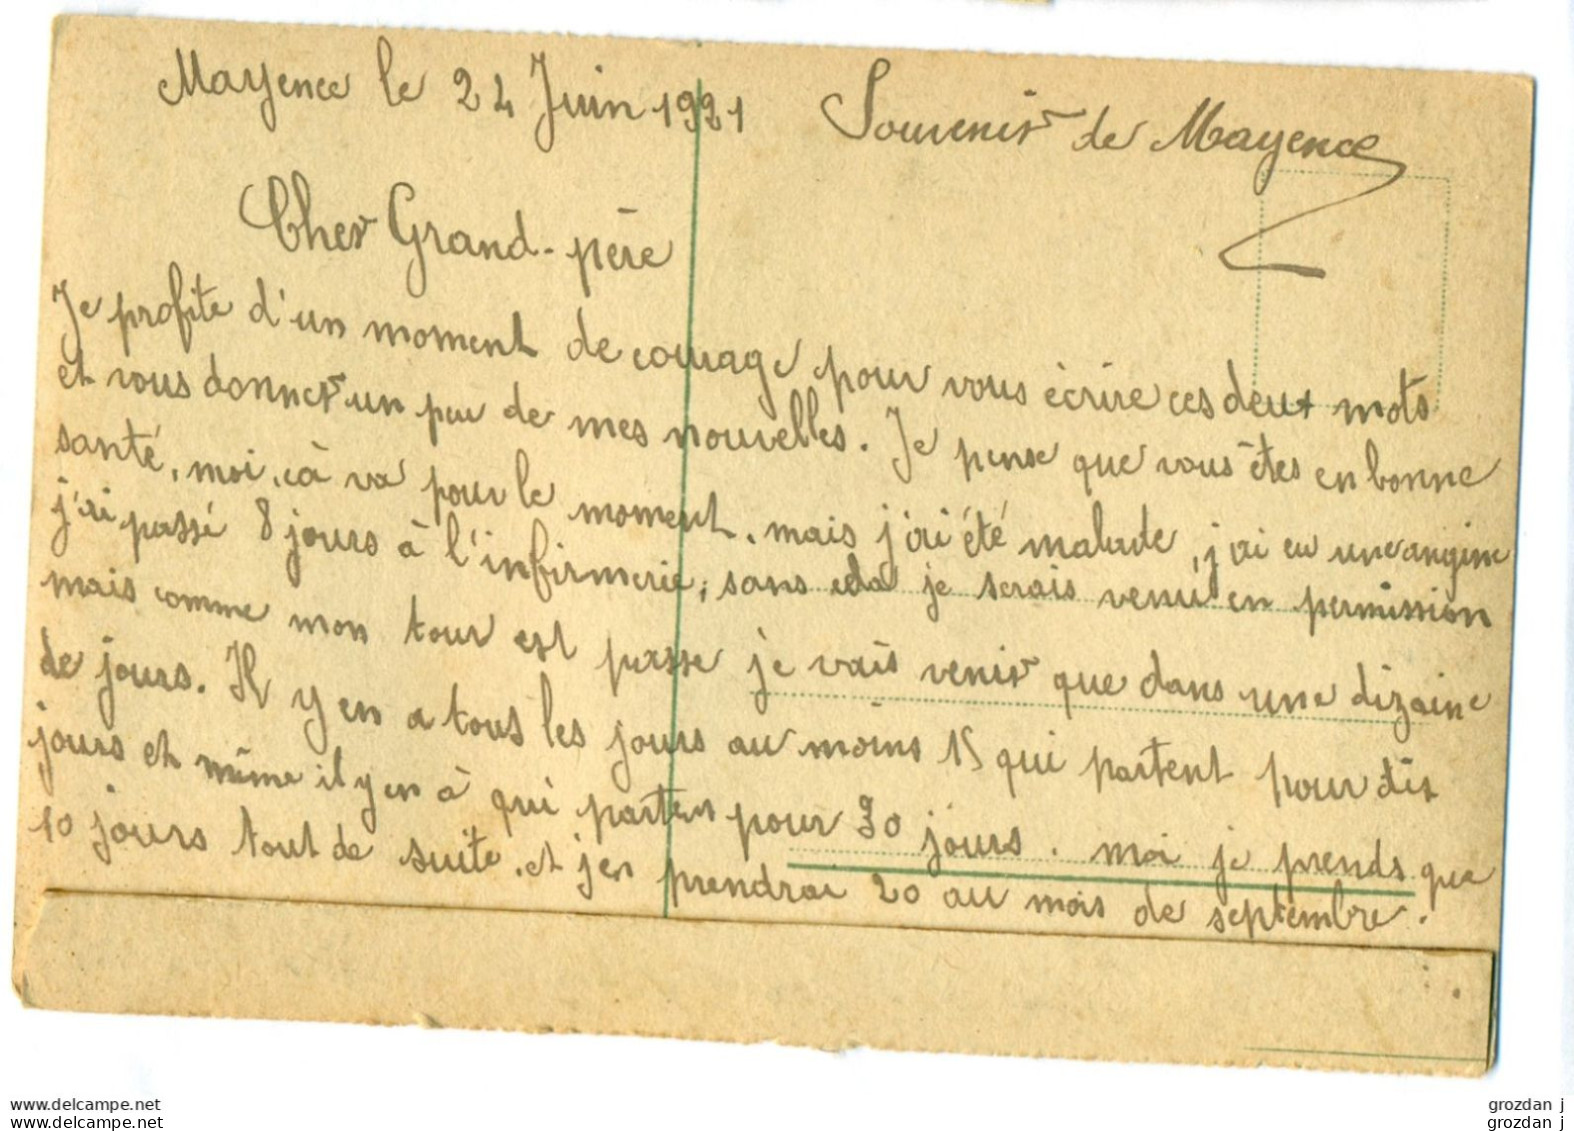 Mayence le 24 Juin 1921
Souvenir de Mayence
Cher Grand-père
Je profite d'un moment de courage pour vous écrire ces deux mots
et vous donner un peu de mes nouvelles. Je pense que vous êtes en bonne
santé, moi, cà va pour le moment, mais j'ai été malade, j'ai eu une angine
j'ai passé 8 jours à l'infirmerie, sans cela je serais venu en permission
mais comme mon tour est passe je vais venir que dans une dizaine
de jours. Il y en a tous les jours au moins 15 qui partent pour dix
jours et même il y en à qui partent pour 30 jours. moi je prends que
10 jours tout de suite, et j'en prendrai 20 au mois de septembre.
www.delcampe.net
www.delcampe.net
grozdan j
grozdan j